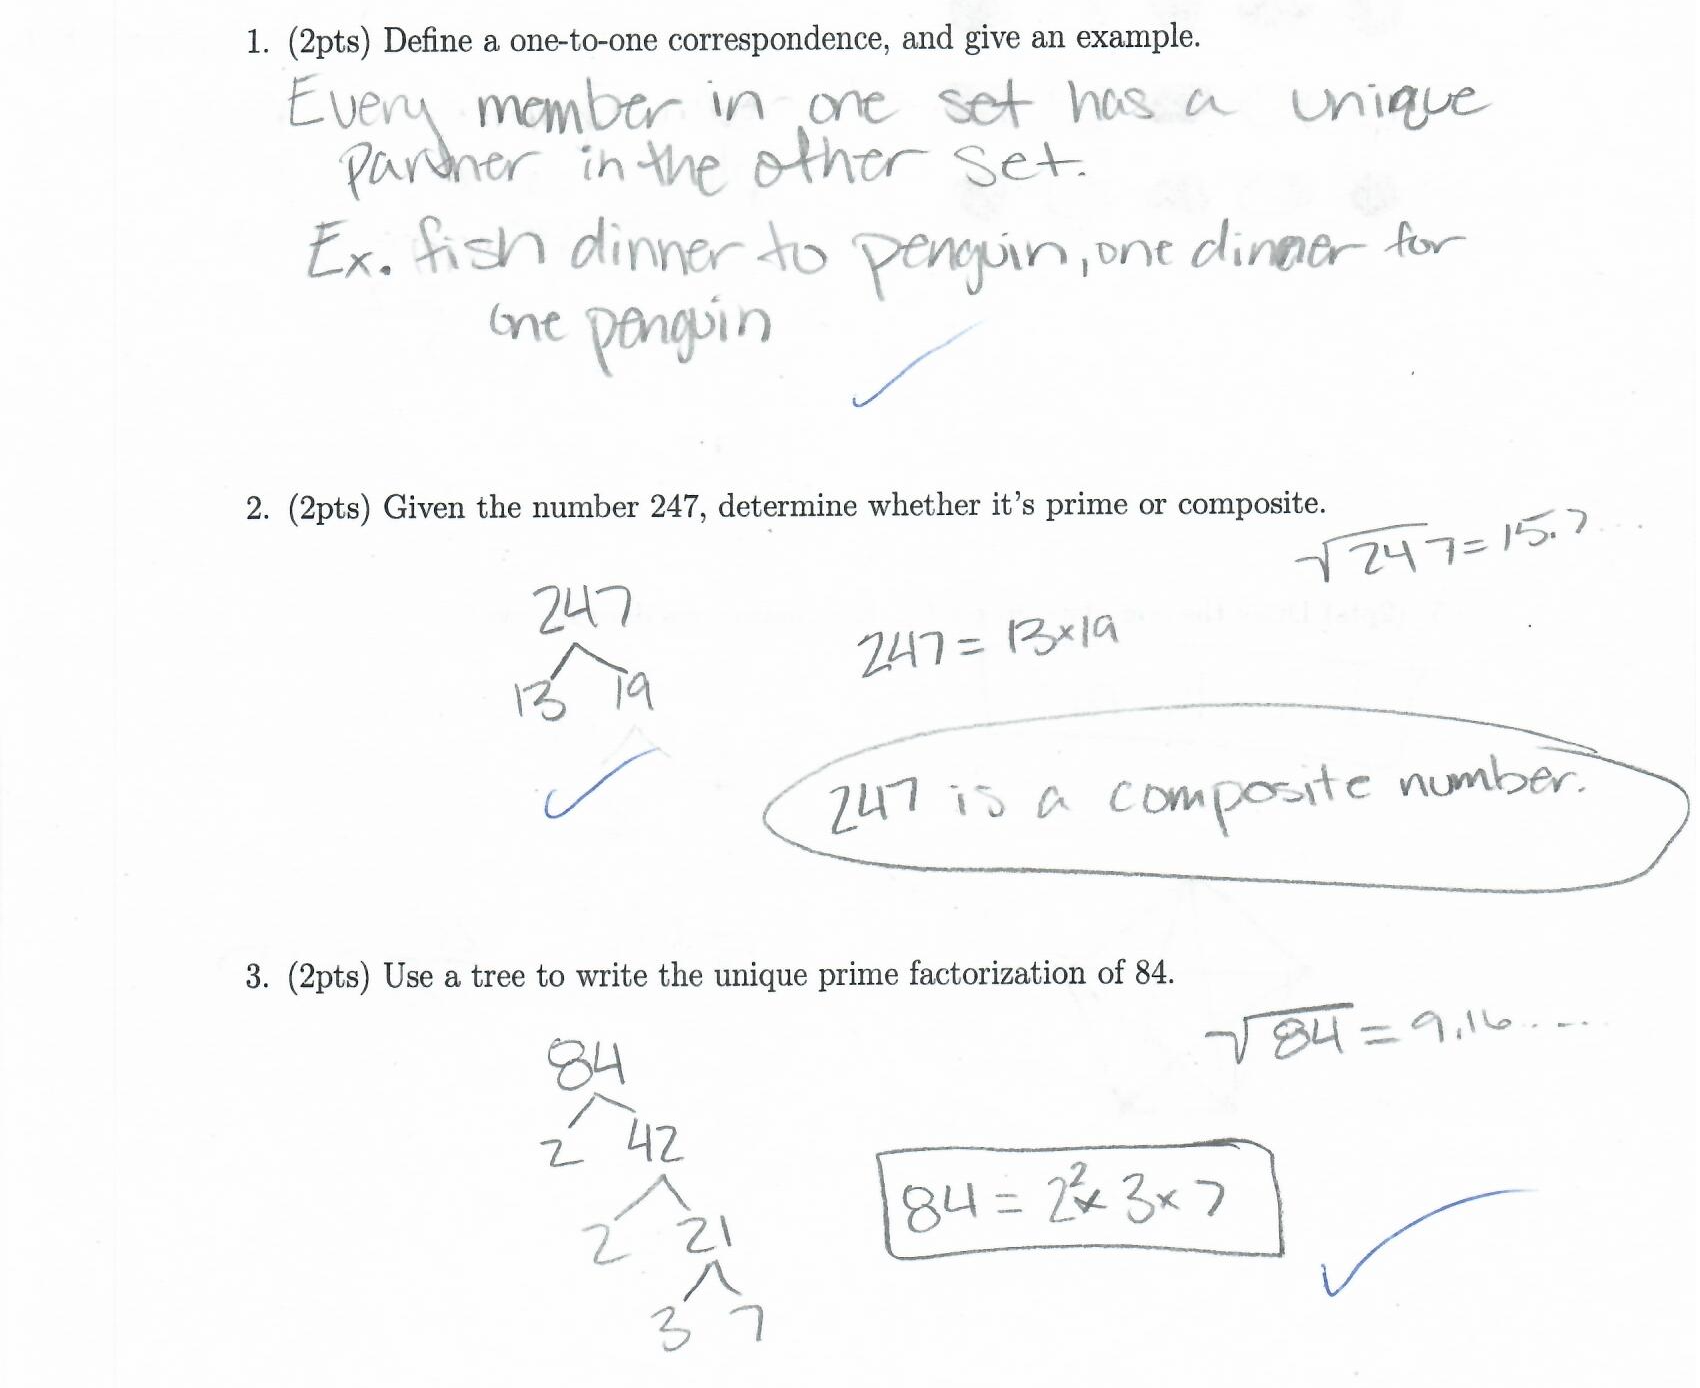 1. (2pts) Define a one-to-one correspondence, and give an example.
Every member in one set has a unique
partner in the other set.
Ex. fish dinner to penguin, one dinner for
one penguin
2. (2pts) Given the number 247, determine whether it's prime or composite.
√247 = 15.7...
247
13 19
247 = 13×19
247 is a composite number.
3. (2pts) Use a tree to write the unique prime factorization of 84.
√84 = 9.16.....
84
2 42
2 21
3 7
84 = 2²× 3×7